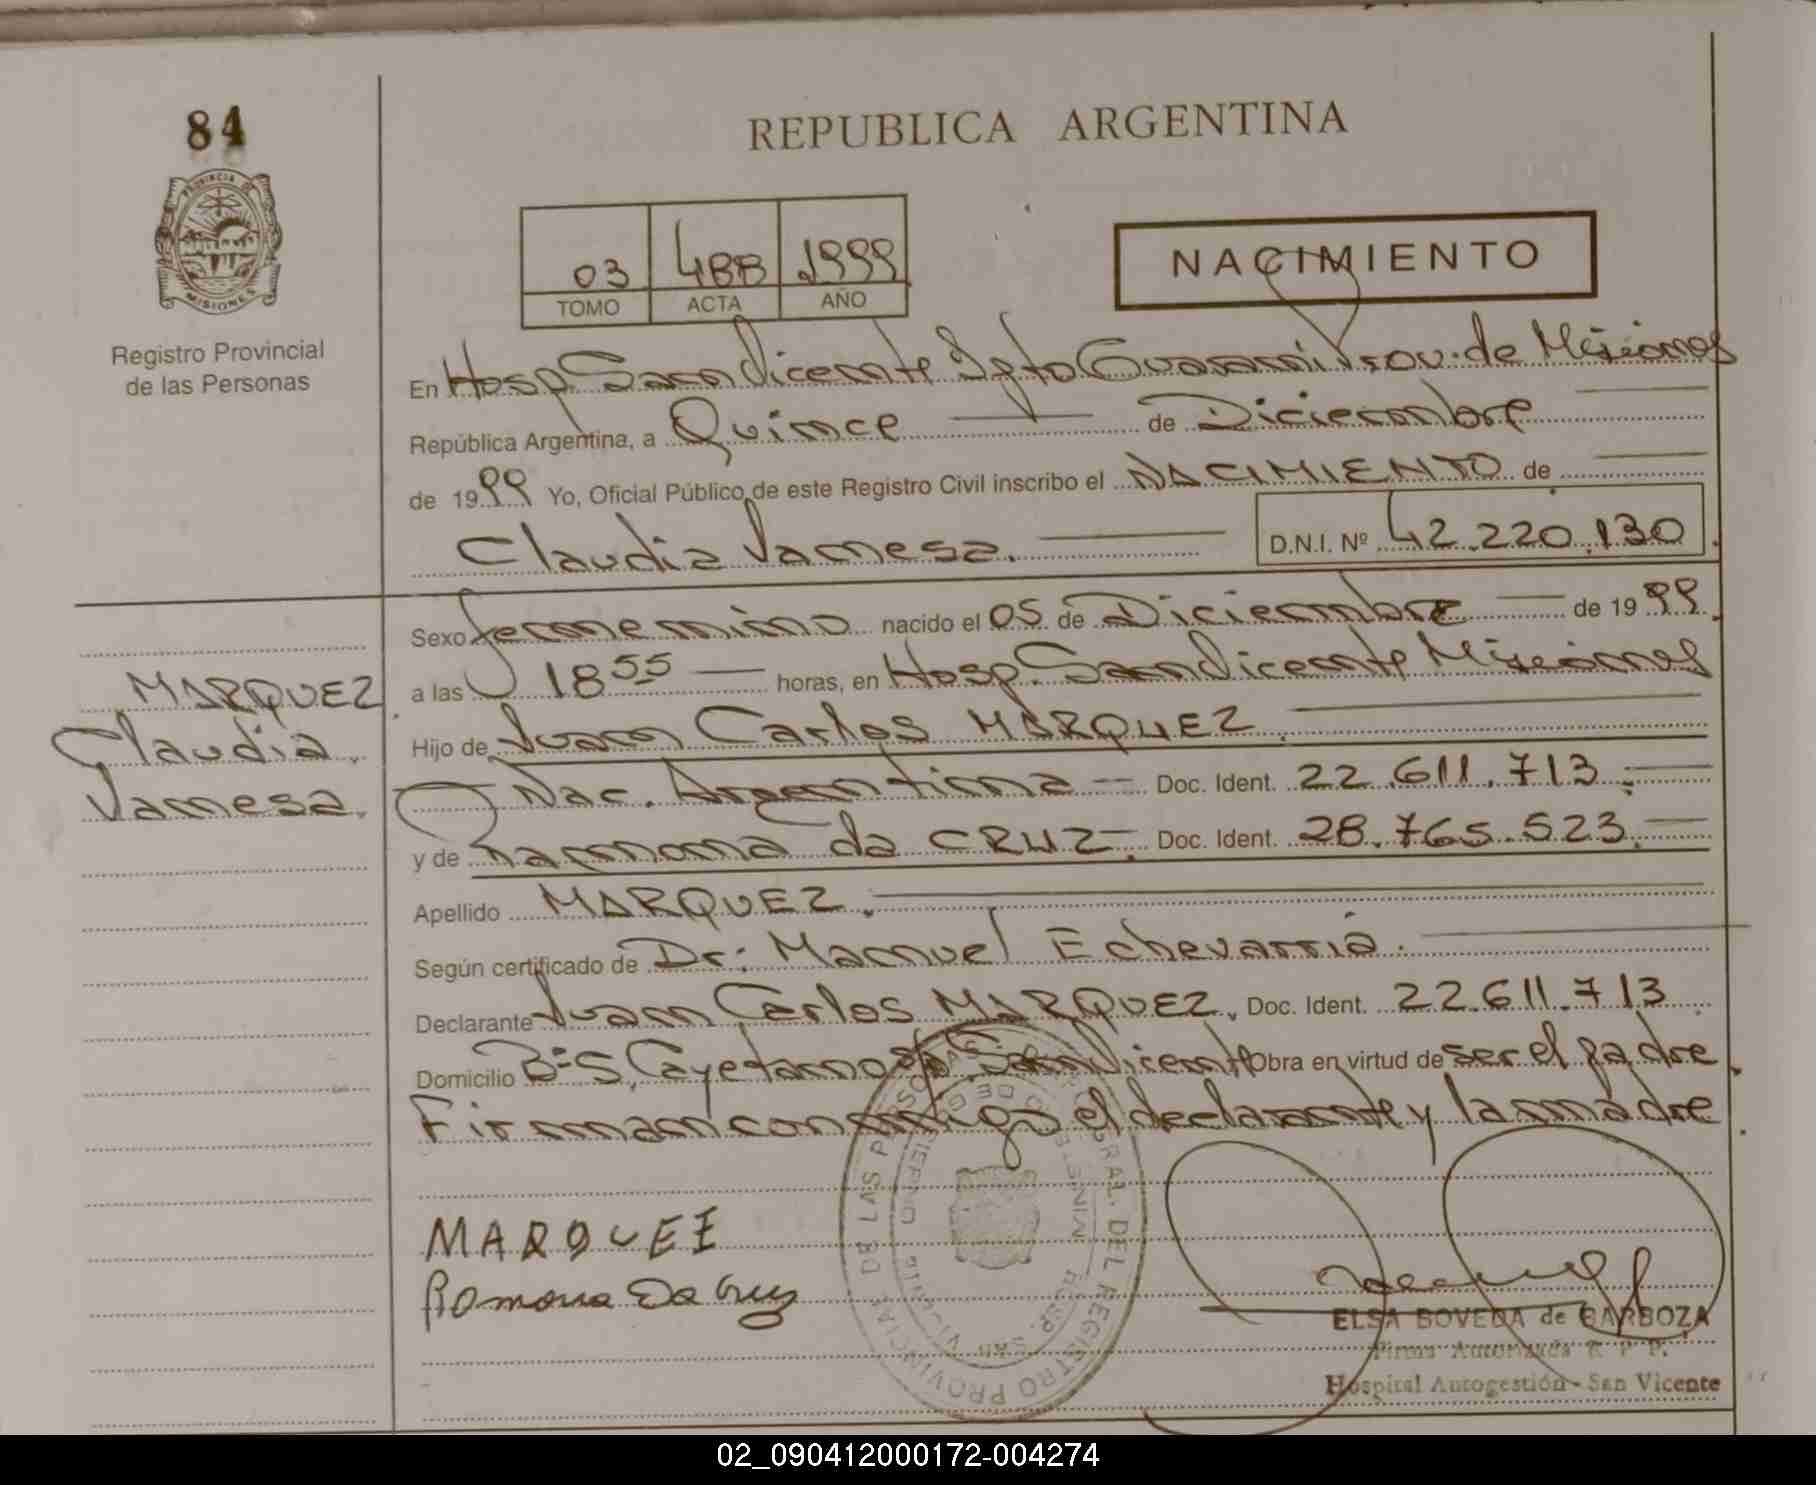 84
PROVINCIA DE
MISIONES
Registro Provincial
de las Personas
REPUBLICA ARGENTINA
03 488 1999
TOMO ACTA AÑO
NACIMIENTO
En Hosp. San Vicente Dpto Guarani Prov. de Misiones
República Argentina, a Quince de Diciembre
de 1999 Yo, Oficial Público de este Registro Civil inscribo el NACIMIENTO de
Claudia Vanesa. D.N.I. Nº 42.220.130
Sexo femenino nacido el 05 de Diciembre de 1999.
a las 18 55 horas, en Hosp. San Vicente Misiones
Hijo de Juan Carlos MARQUEZ.
Nac. Argentina Doc. Ident. 22.611.713.
y de Ramona da CRUZ. Doc. Ident. 28.765.523.
Apellido MARQUEZ.
Según certificado de Dr: Manuel Echevarria.
Declarante Juan Carlos MARQUEZ. Doc. Ident. 22.611.713
Domicilio Bº S. Cayetano San Vicente Obra en virtud de ser el padre.
Firman conmigo el declarante y la madre.
MARQUEZ
Claudia.
Vanesa.
MARQUEZ
Romona Da Cruz
REGISTRO PROVINCIAL DE LAS PERSONAS
HOSP. SAN VICENTE
ELSA BOVEDA de BARBOZA
Firma Autorizada R. P. P.
Hospital Autogestión - San Vicente
02_090412000172-004274